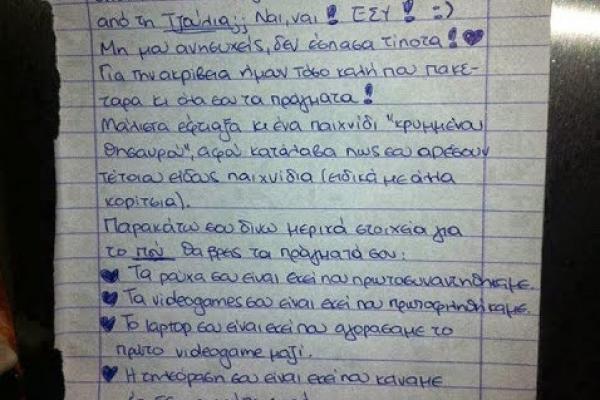 από τη Τζούλια;; Ναι, ναι! ΕΣΥ! :)
Μη μου ανησυχείς, δεν έσπασα τίποτα! ♥
Για την ακρίβεια ήμουν τόσο καλή που πακε-
ταρα κι όλα σου τα πράγματα!
Μάλιστα έφτιαξα κι ένα παιχνίδι "κρυμμένου
θησαυρού", αφού κατάλαβα πως σου αρέσουν
τέτοιου είδους παιχνίδια (ειδικά με άλλα
κορίτσια).
Παρακάτω σου δίνω μερικά στοιχεία για
το πού θα βρεις τα πράγματά σου:
♥ Τα ρούχα σου είναι εκεί που πρωτοσυναντηθήκαμε.
♥ Τα videogames σου είναι εκεί που πρωτοφιληθήκαμε.
♥ Το laptop σου είναι εκεί που αγοράσαμε το
πρώτο videogame μαζί.
♥ Η τηλεόραση σου είναι εκεί που κάναμε